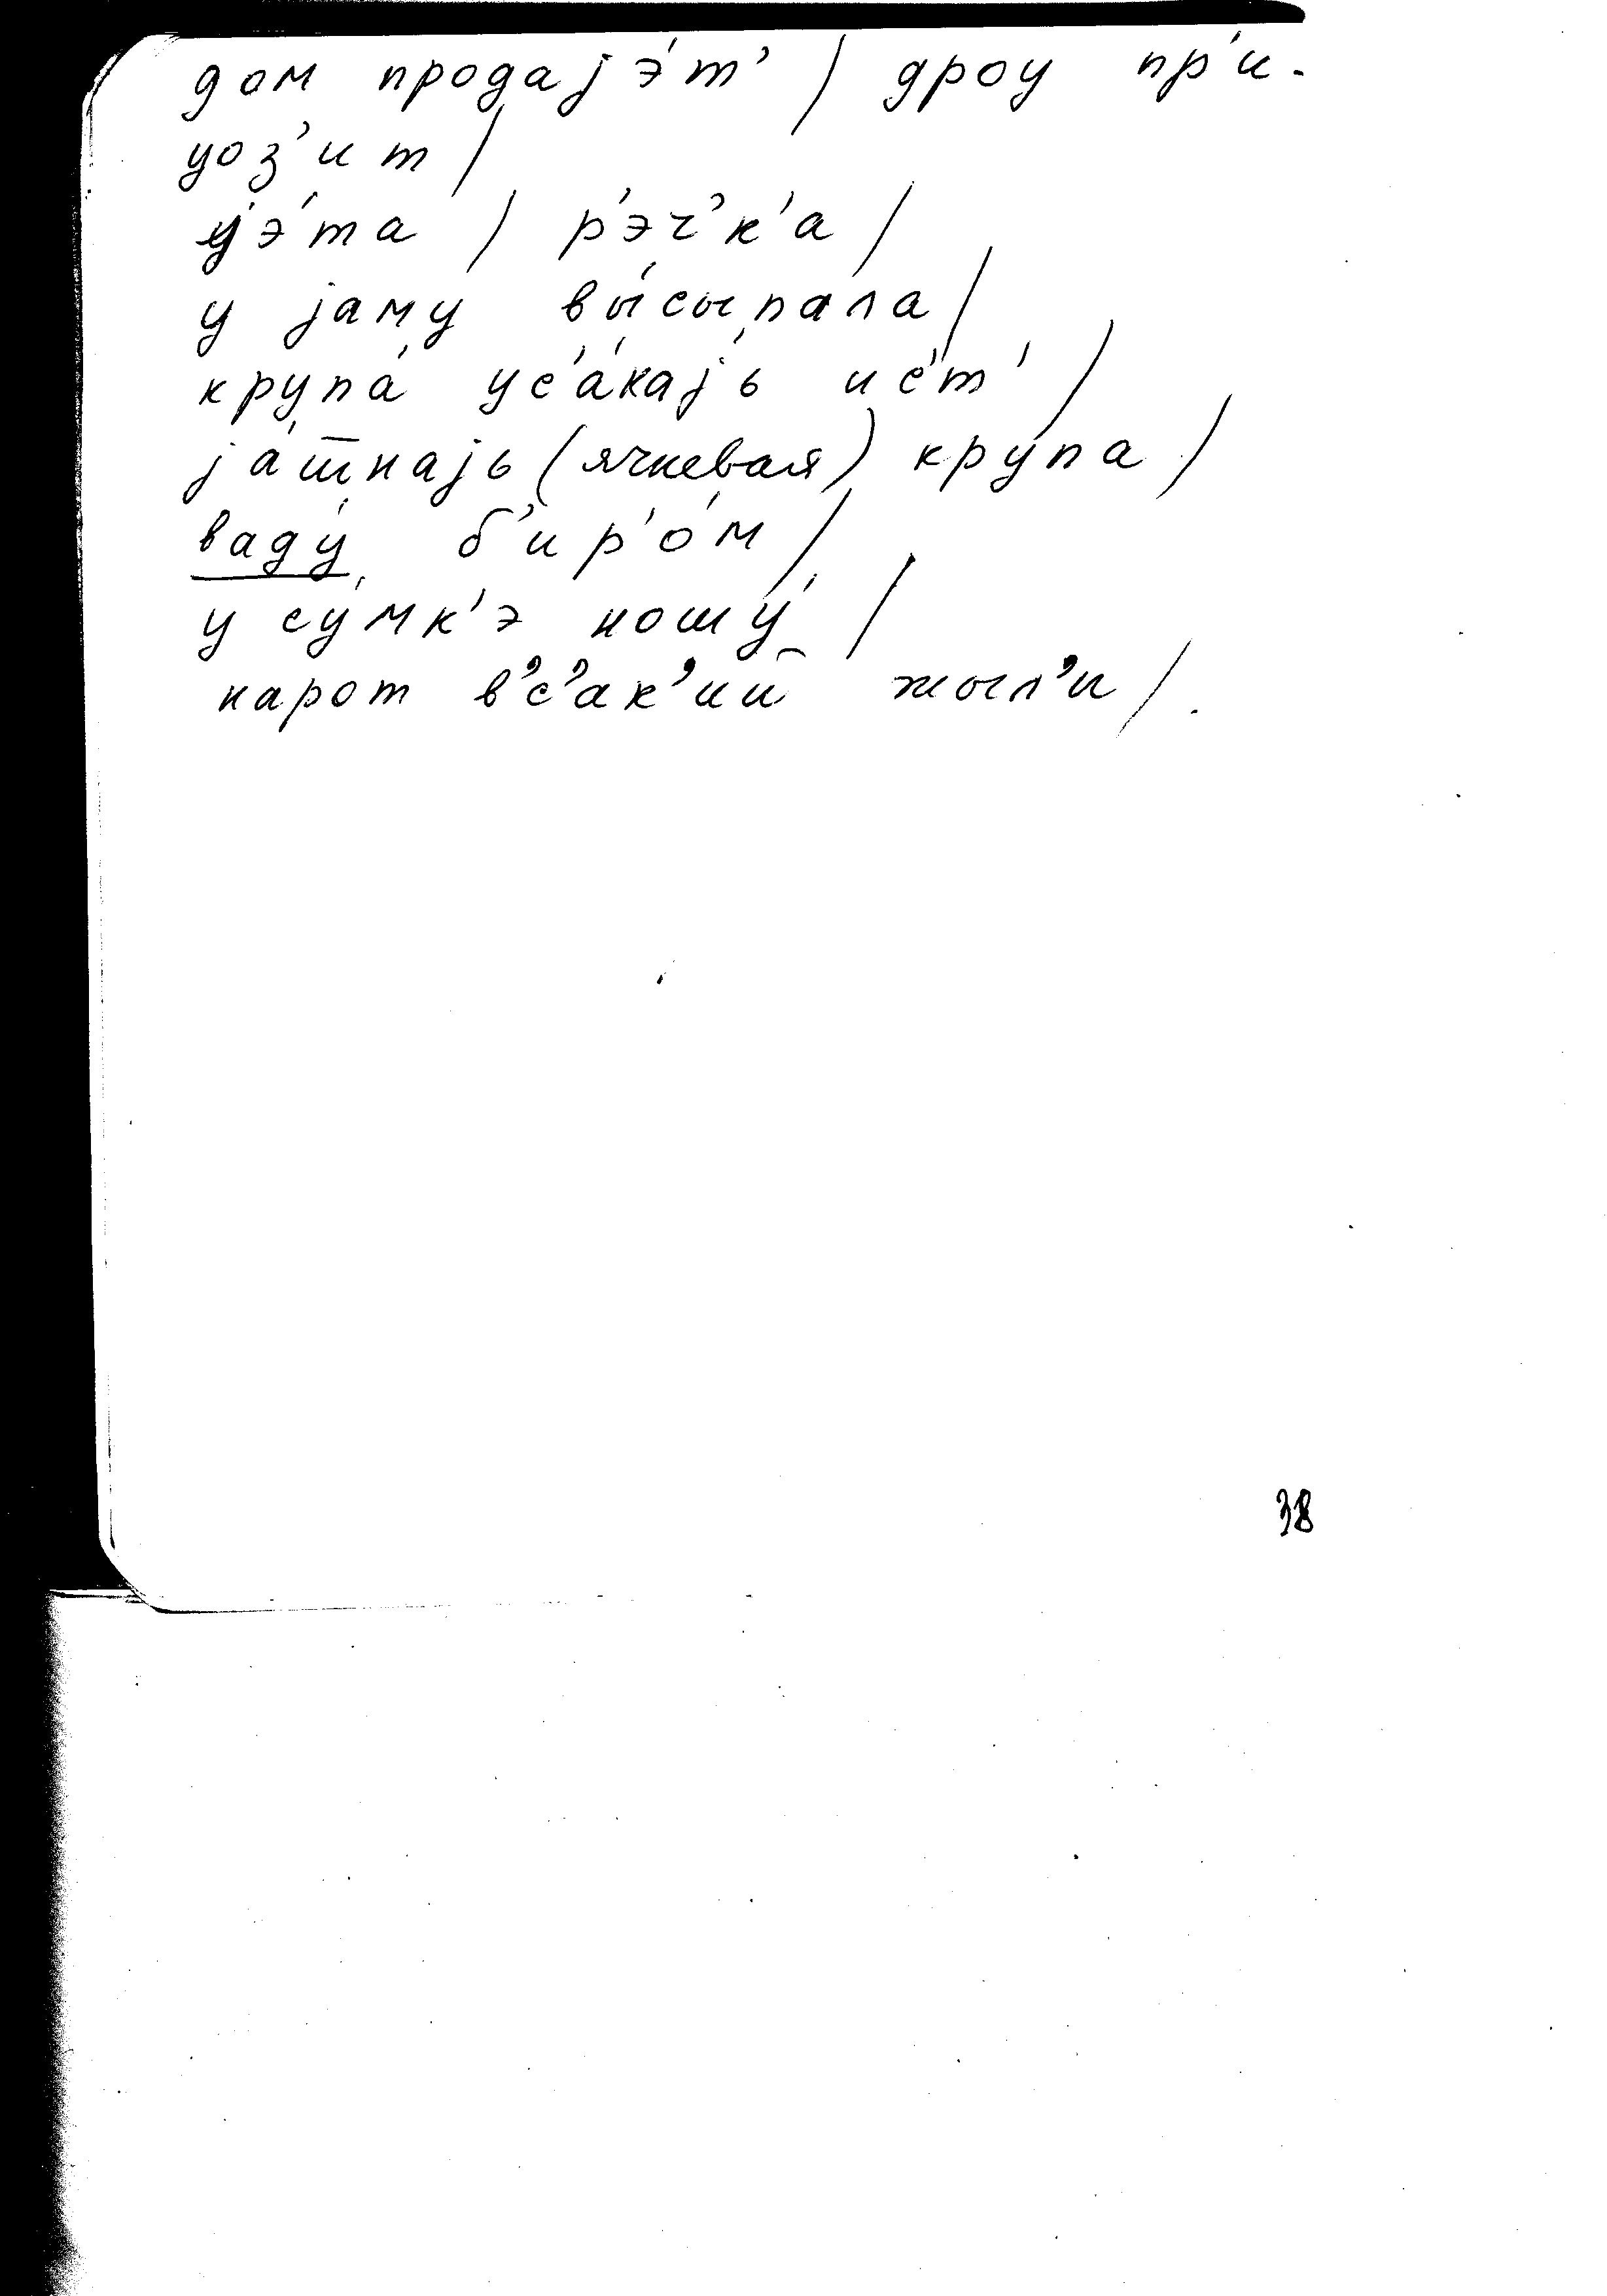 дом продајэ́т' / дроу пр'и-
уоз'ит /
ујэ́та / р'эч'к'а /
у јаму вы́сыпала /
крупа́ ус'а́кајь ис'т' /
јашнајь (ячневая) крупа /
ваду́ б'ир'о́м /
у су́мк'э ношу́ /
нарот в'с'ак'ий жыл'и /.
38